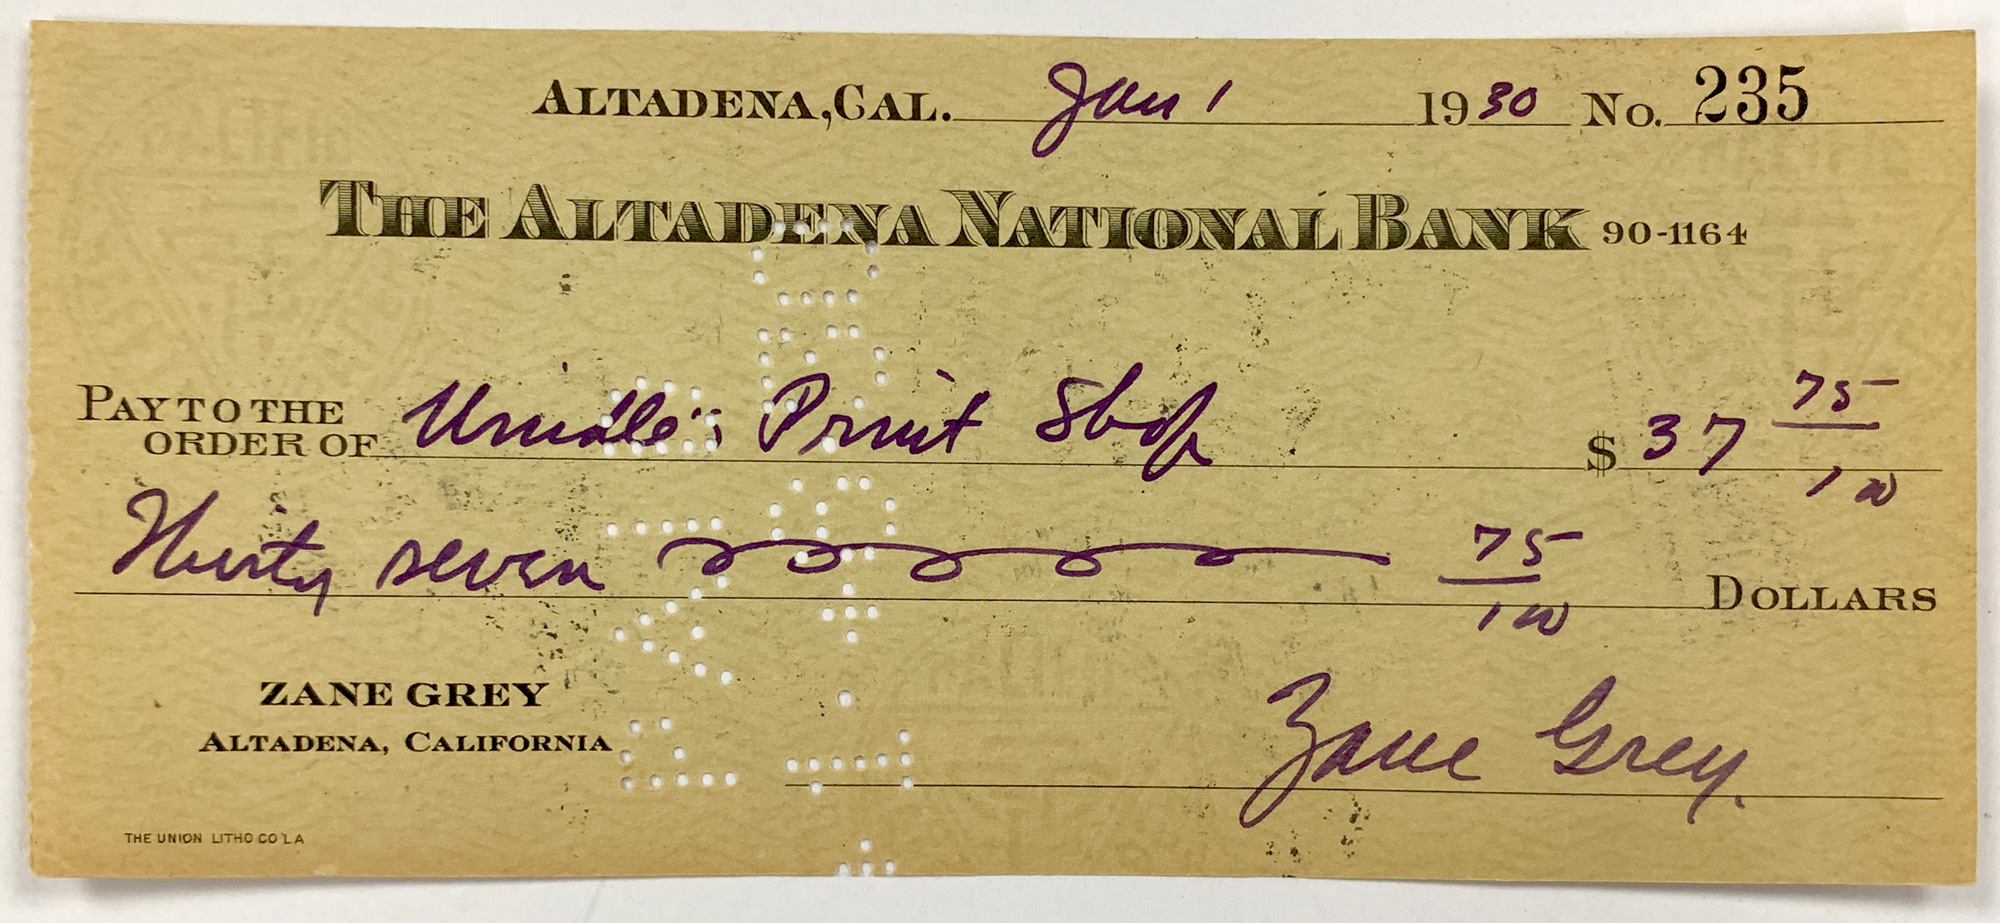 ALTADENA, CAL. Jan 1 1930 No. 235
THE ALTADENA NATIONAL BANK 90-1164
PAY TO THE ORDER OF Print Shop $ 37 75/100
Thirty seven 75/100 DOLLARS
ZANE GREY
ALTADENA, CALIFORNIA
Zane Grey.
THE UNION LITHO CO LA